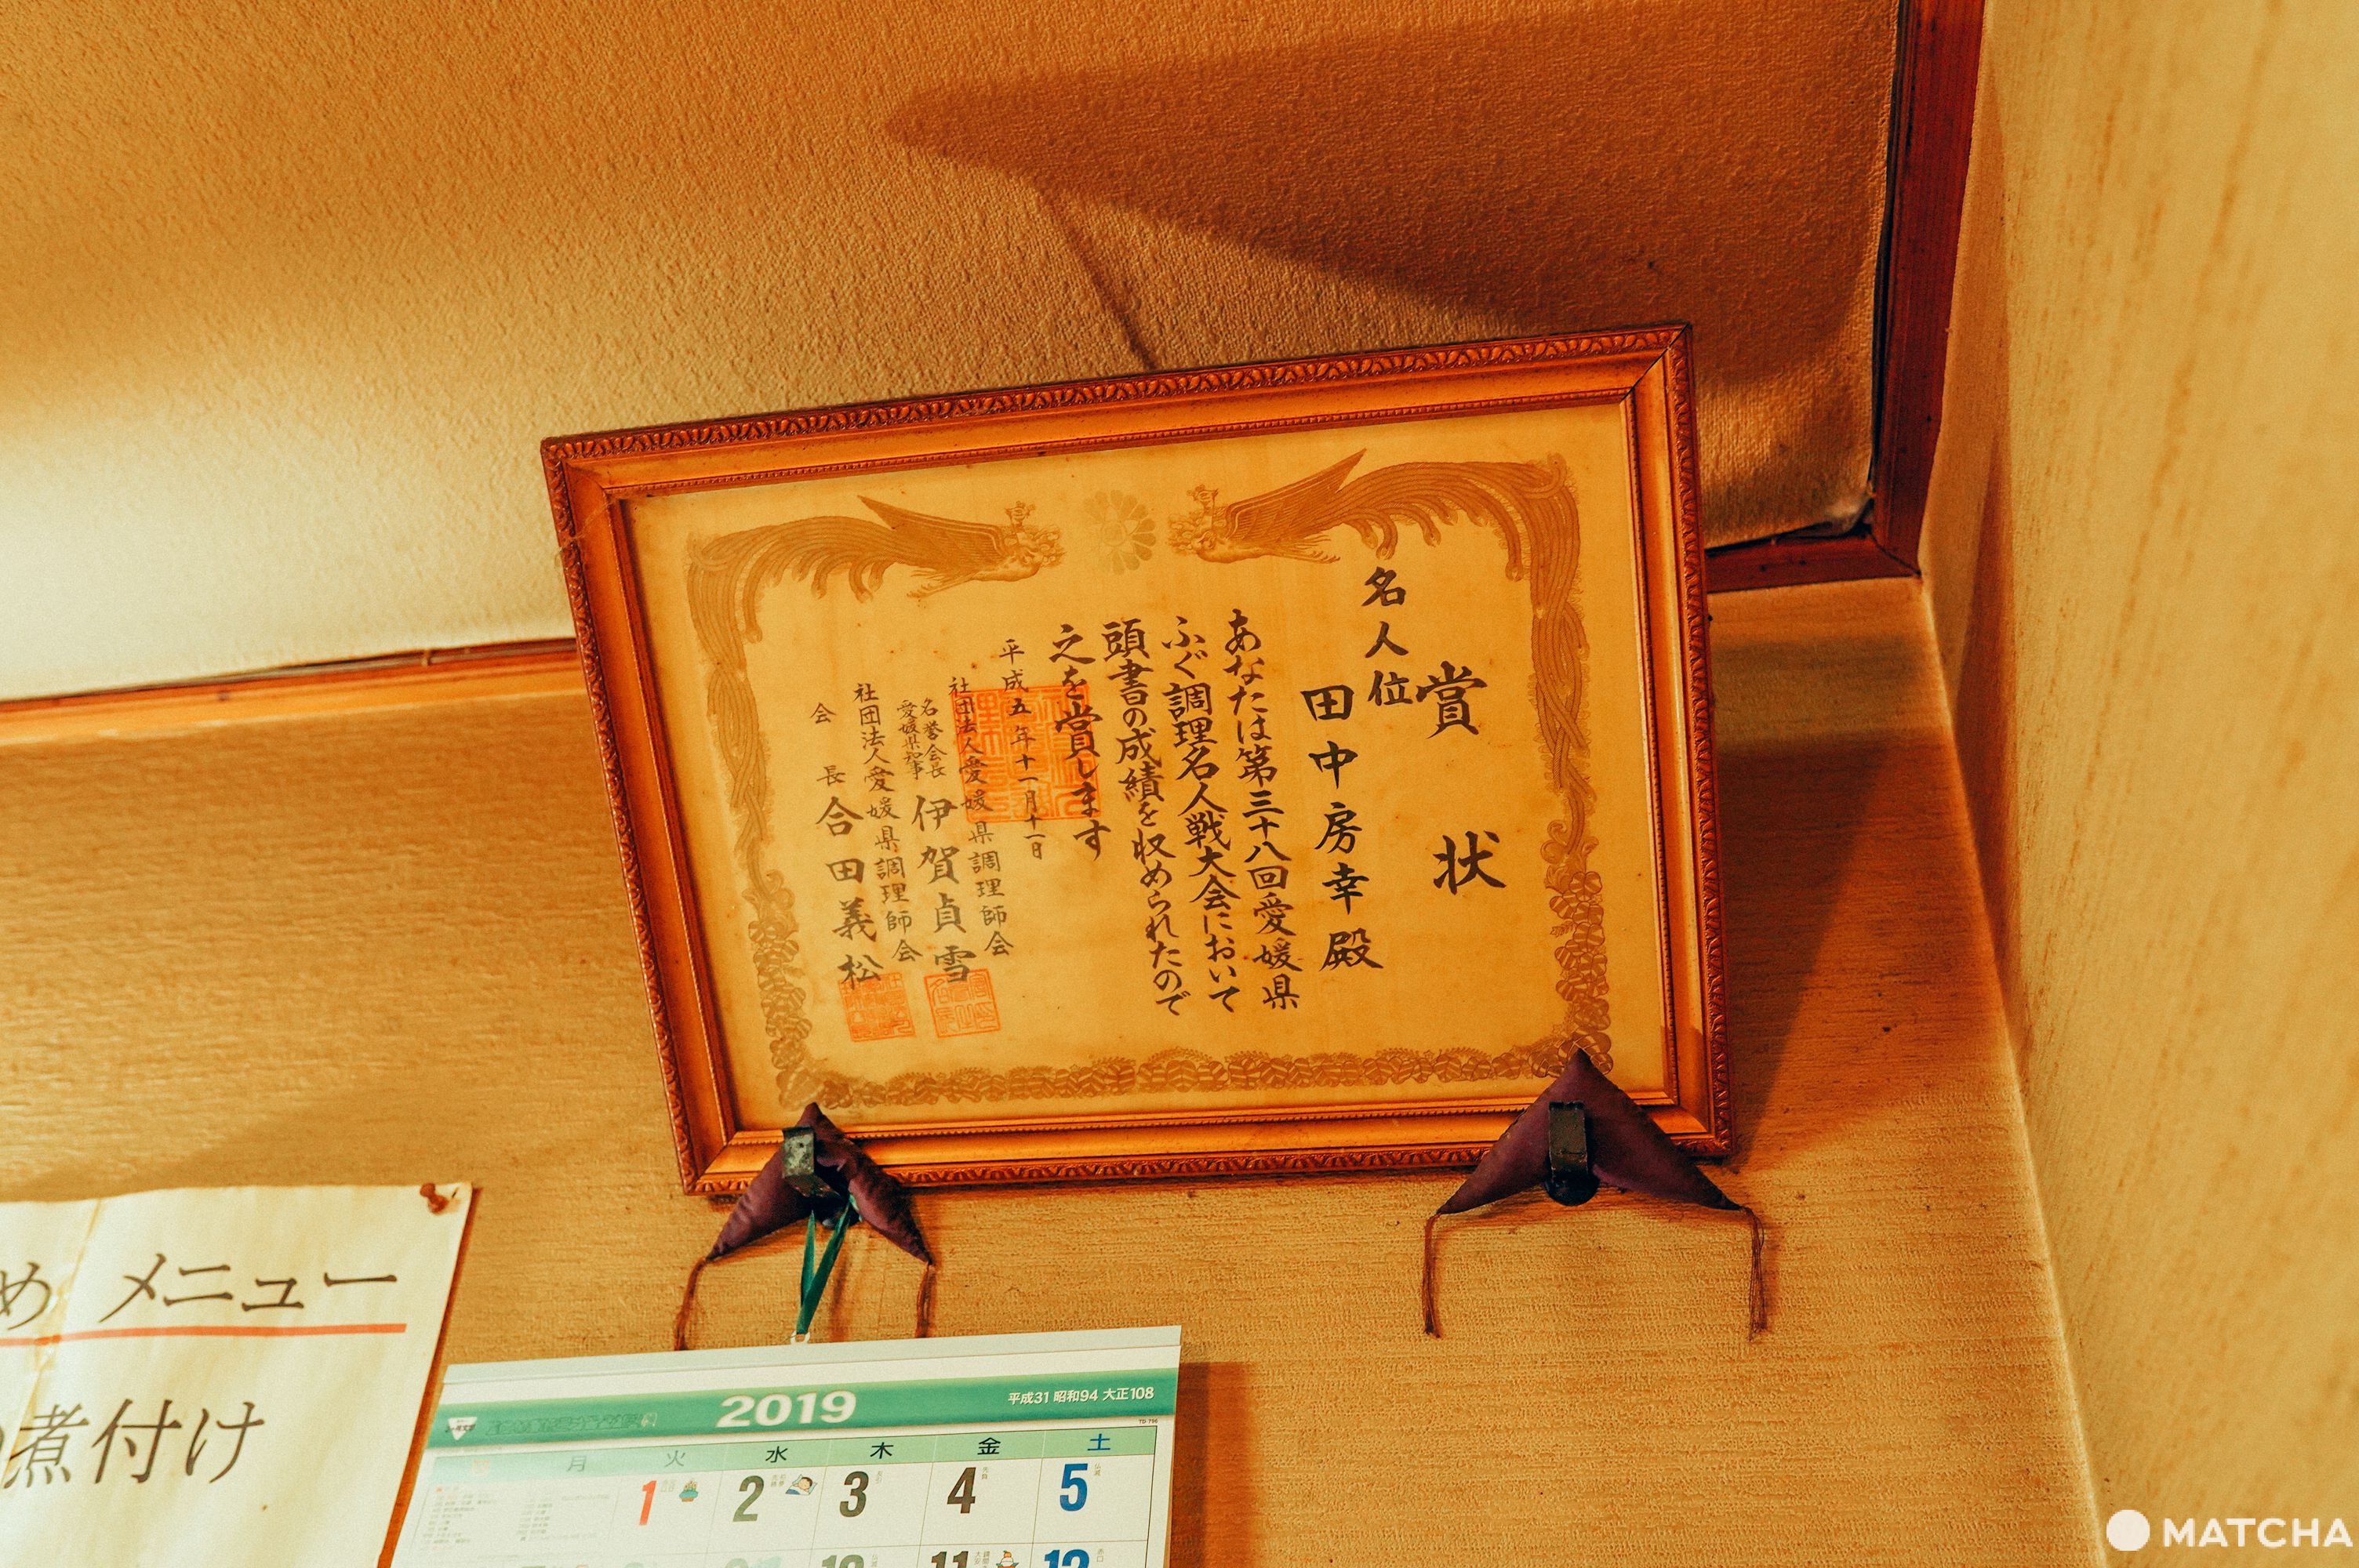 賞状
名人位
田中房幸殿
あなたは第三十八回愛媛県
ふぐ調理名人戦大会において
頭書の成績を収められたので
之を賞します
平成五年十一月十一日
社団法人愛媛県調理師会
名誉会長
愛媛県知事
伊賀貞雪
社団法人愛媛県調理師会
会長 合田義松
め メニュー
煮付け
2019
平成31 昭和94 大正108
月 火 水 木 金 土
1 2 3 4 5
10 11 12
MATCHA